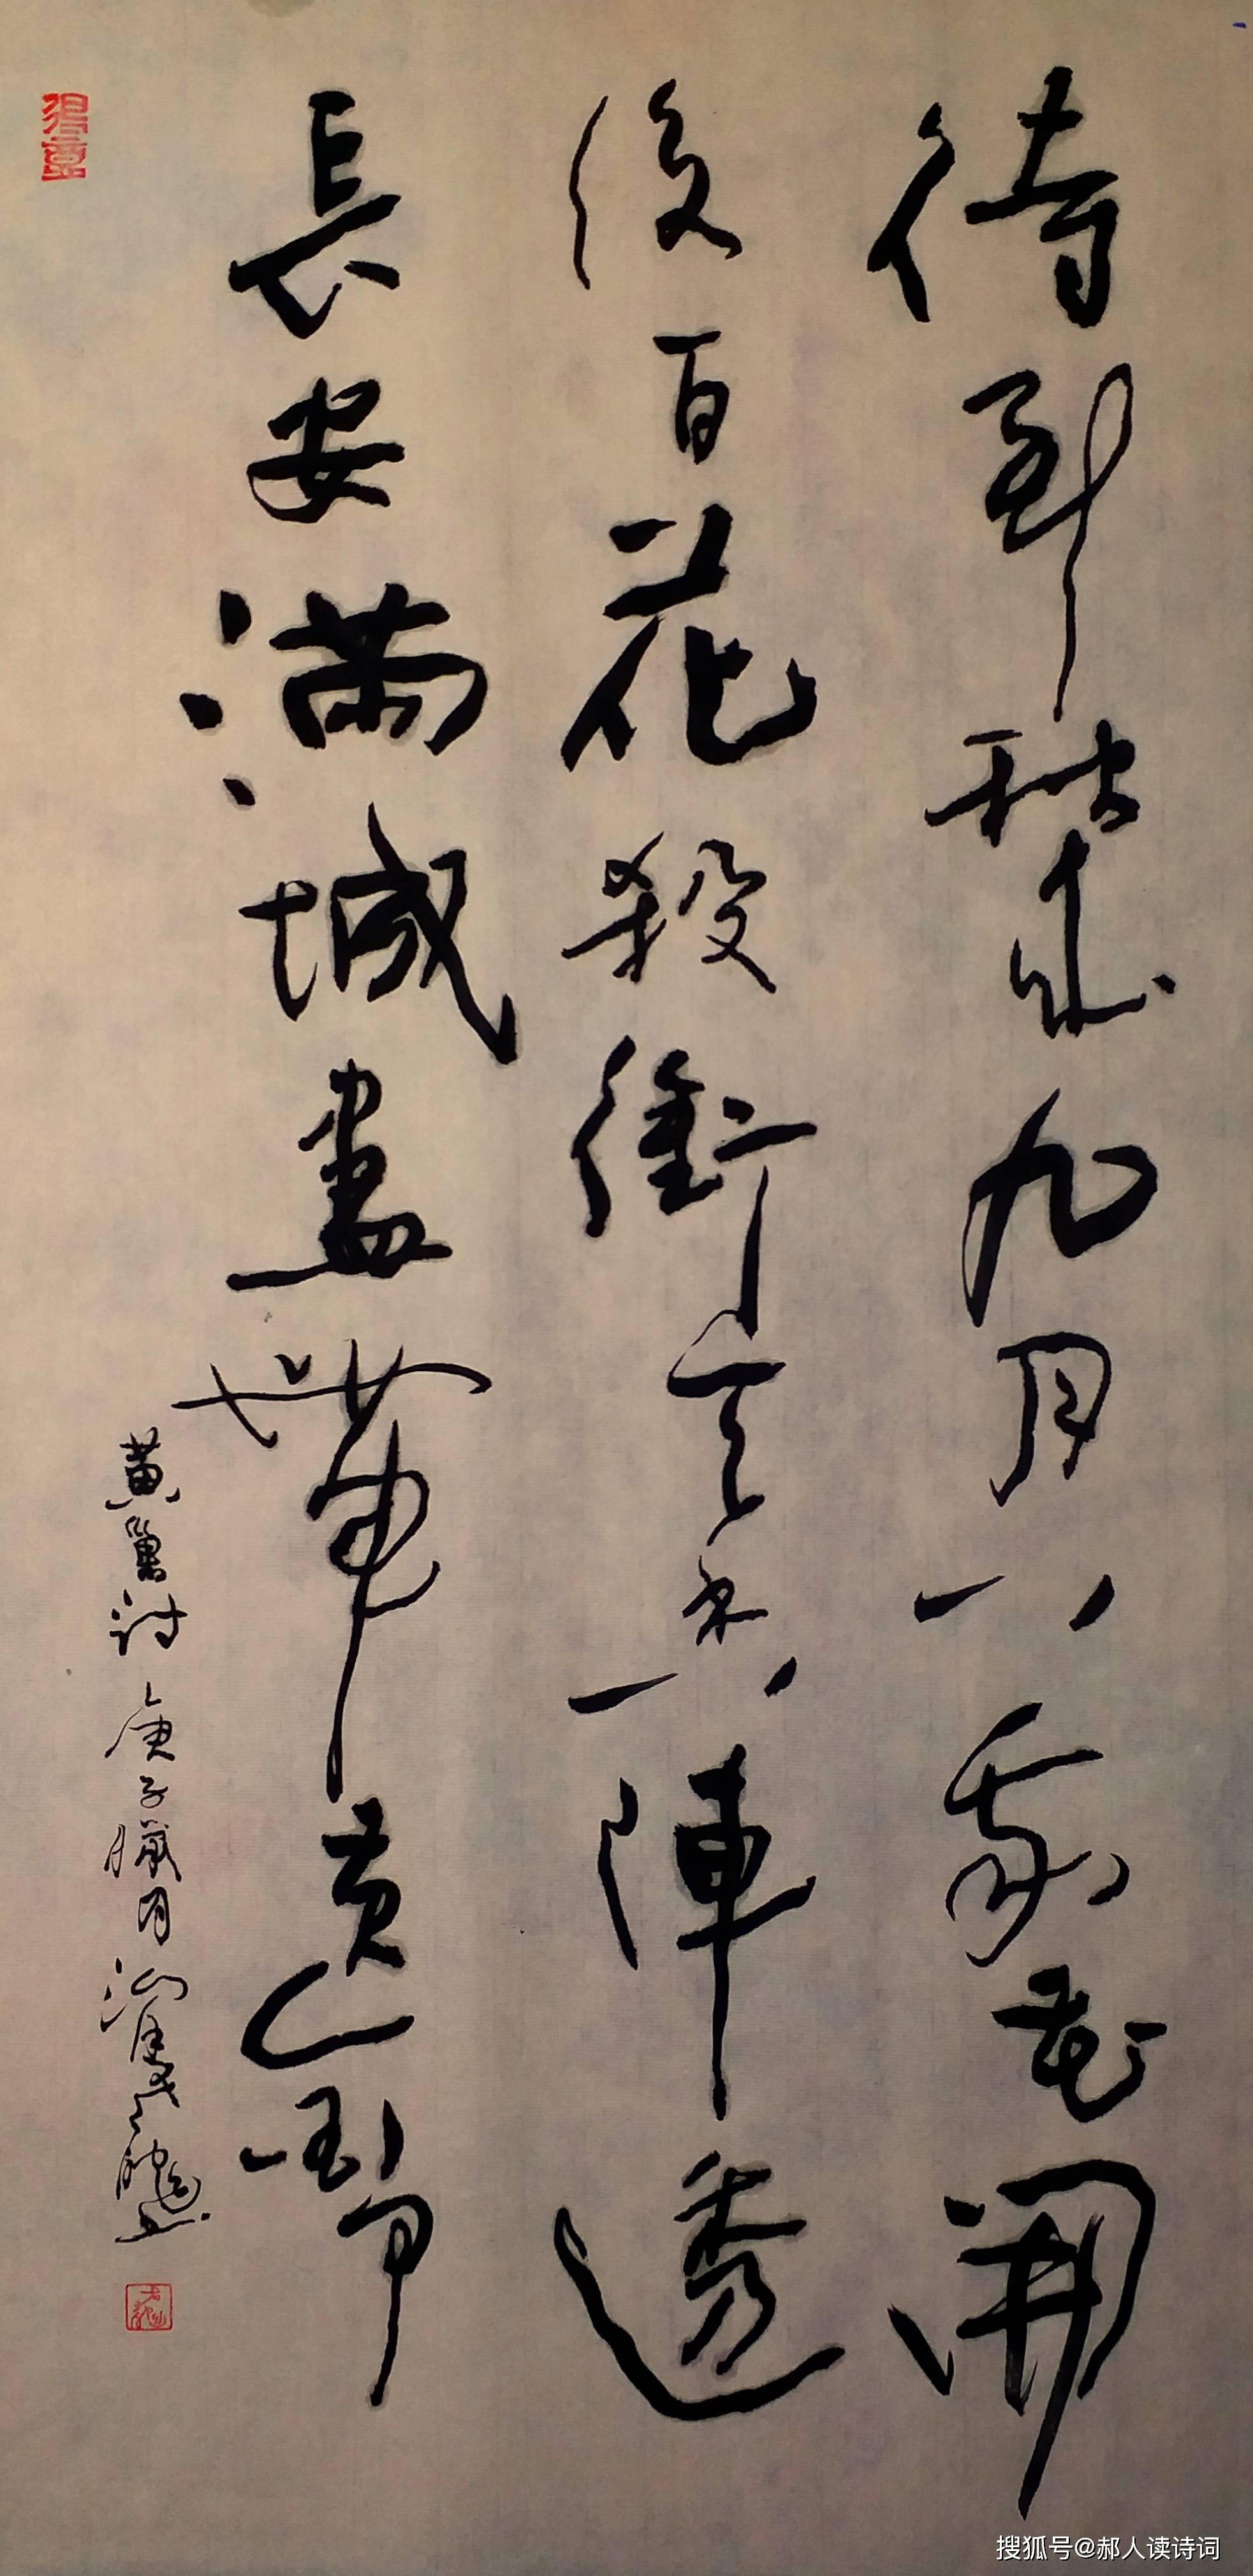 待到秋來九月八我花開
後百花殺衝天香陣透
長安滿城盡帶黃金甲
黄巢詩 庚子臘月
搜狐号@郝人读诗词